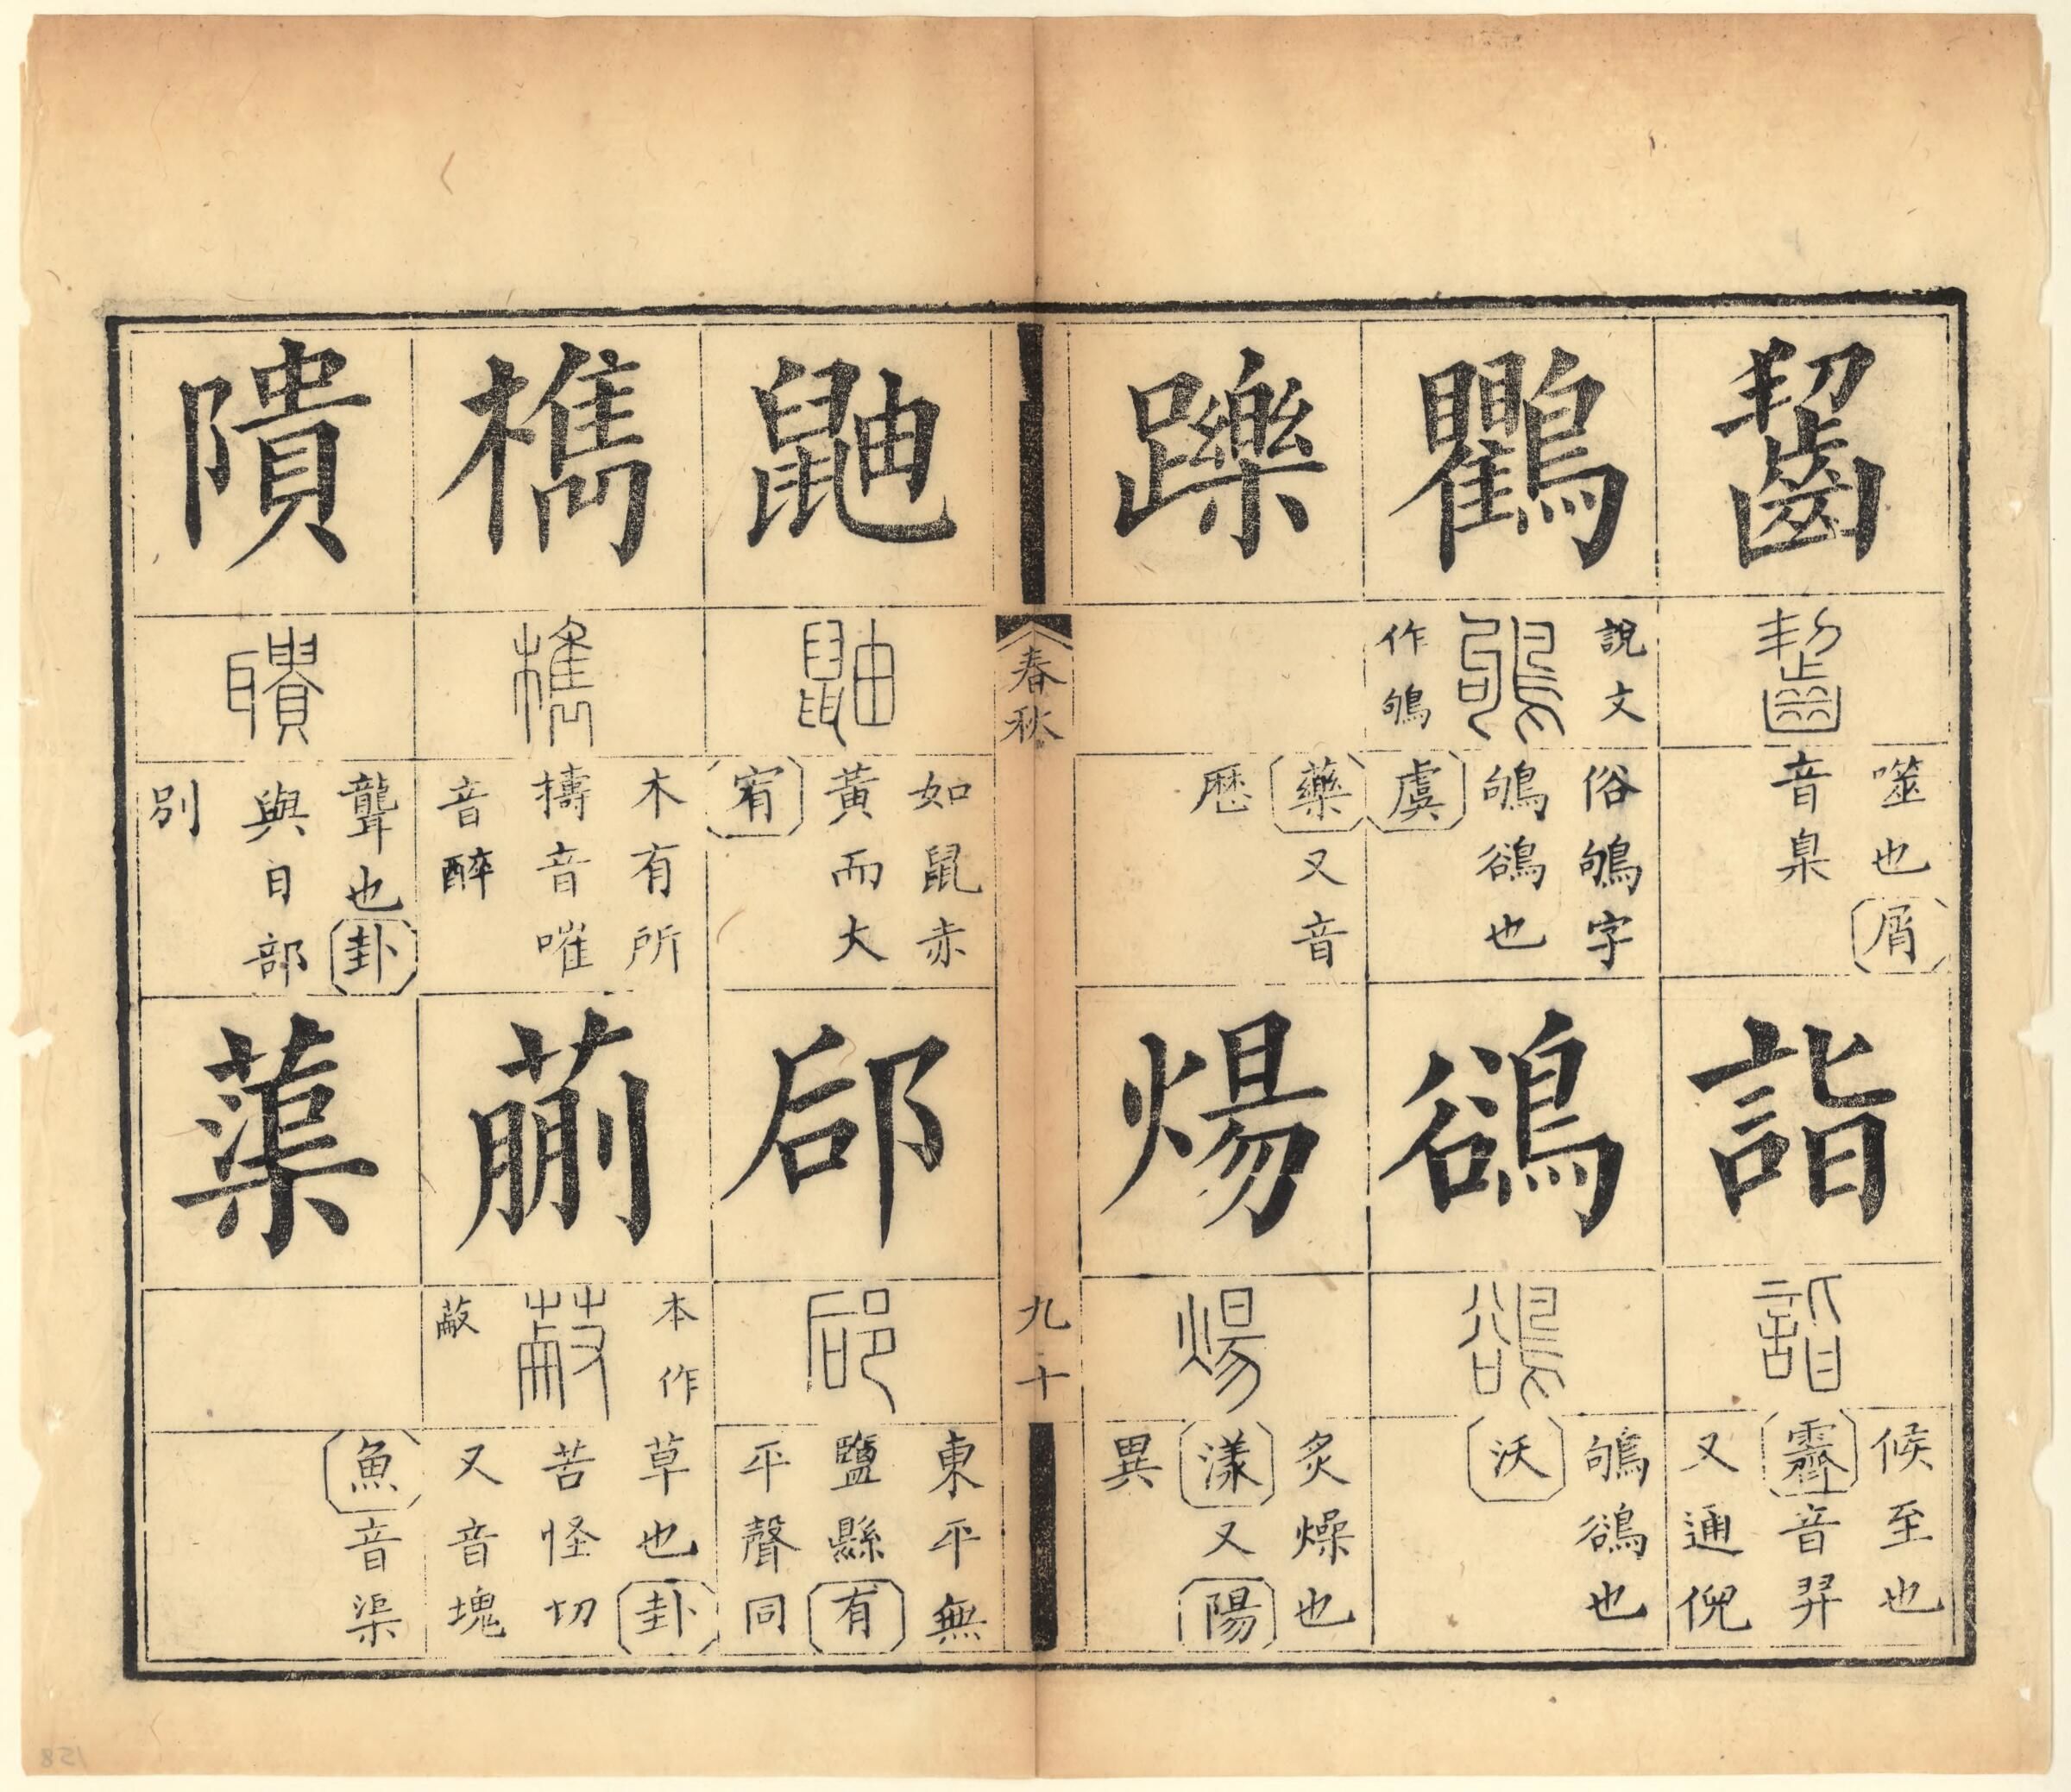 齧
噬也屑
音臬
詣
候至也
霽音羿
又通倪
鸜
說文
作鴝
俗鴝字
鴝鵒也
虞
鵒
鴝鵒也
沃
躒
藥又音
歷
煬
炙燥也
漾又陽
異
春秋
九十
鼬
如鼠赤
黃而大
宥
郈
東平無
鹽縣有
平聲同
檇
木有所
擣音嗺
音醉
蒯
本作
蔽
草也卦
苦怪切
又音塊
聵
聾也卦
與日部
別
蕖
魚音渠